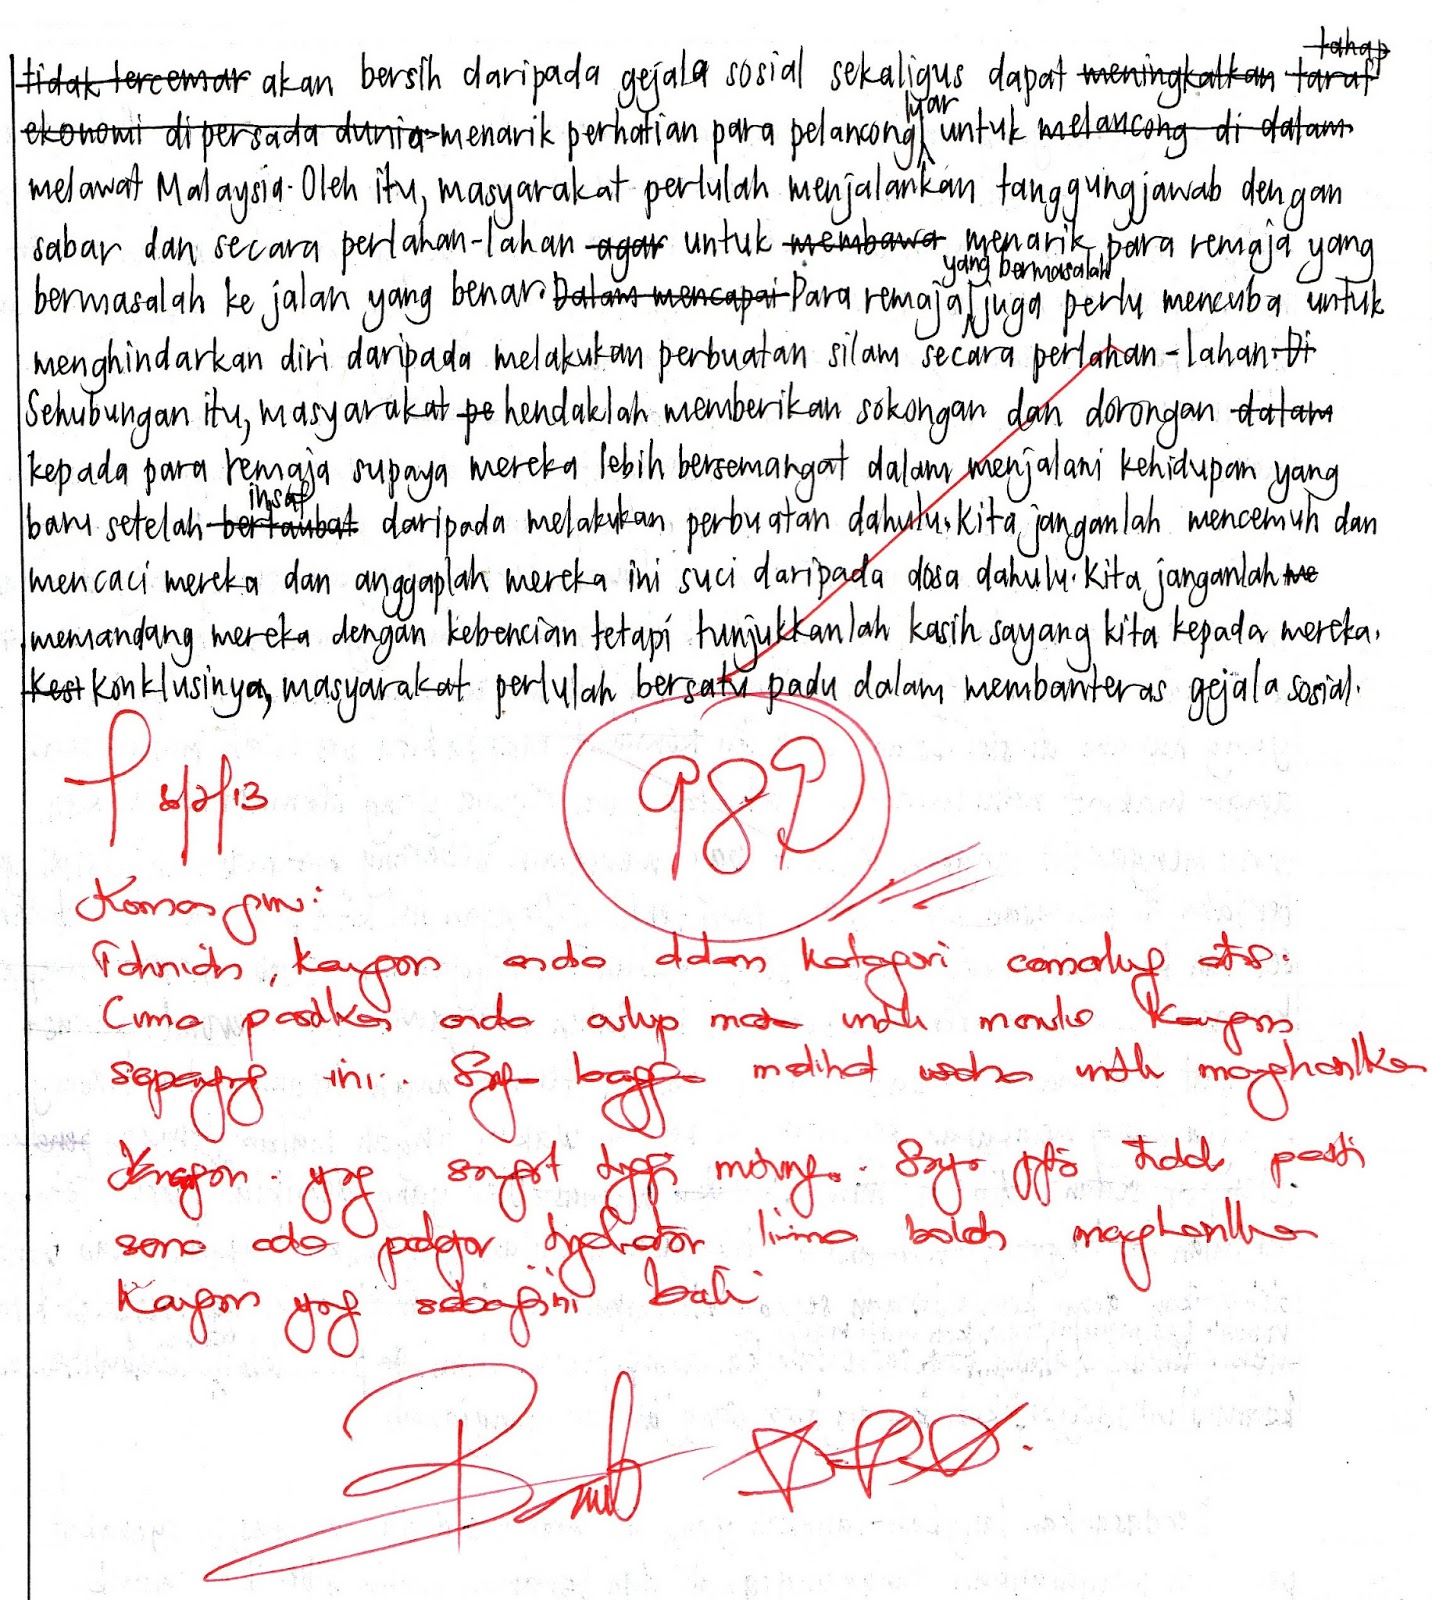 tahap
tidak tercemar akan bersih daripada gejala sosial sekaligus dapat meningkatkan taraf
luar
ekonomi dipersada dunia menarik perhatian para pelancong untuk melancong di dalam
melawat Malaysia. Oleh itu, masyarakat perlulah menjalankan tanggungjawab dengan
sabar dan secara perlahan-lahan agar untuk membawa menarik para remaja yang
yang bermasalah
bermasalah ke jalan yang benar. Dalam mencapai Para remaja juga perlu mencuba untuk
menghindarkan diri daripada melakukan perbuatan silam secara perlahan-lahan. Di
Sehubungan itu, masyarakat pe hendaklah memberikan sokongan dan dorongan dalam
kepada para remaja supaya mereka lebih bersemangat dalam menjalani kehidupan yang
insaf
baru setelah bertaubat daripada melakukan perbuatan dahulu. Kita janganlah mencemuh dan
mencaci mereka dan anggaplah mereka ini suci daripada dosa dahulu. Kita janganlah me
memandang mereka dengan kebencian tetapi tunjukkanlah kasih sayang kita kepada mereka.
Kest Konklusinya, masyarakat perlulah bersatu padu dalam membanteras gejala sosial.
/2/13
98
Komen pm:
Tahniah, karangan anda dalam kategori cemerlang atas.
Cuma pastikan anda cukup masa untuk menulis karangan
sepanjang ini. Saya bangga melihat usaha untuk menghasilkan
karangan yang sangat tinggi mutunya. Saya juga tidak pasti
sama ada pelajar tingkatan lima boleh menghasilkan
karangan yang sebegini baik